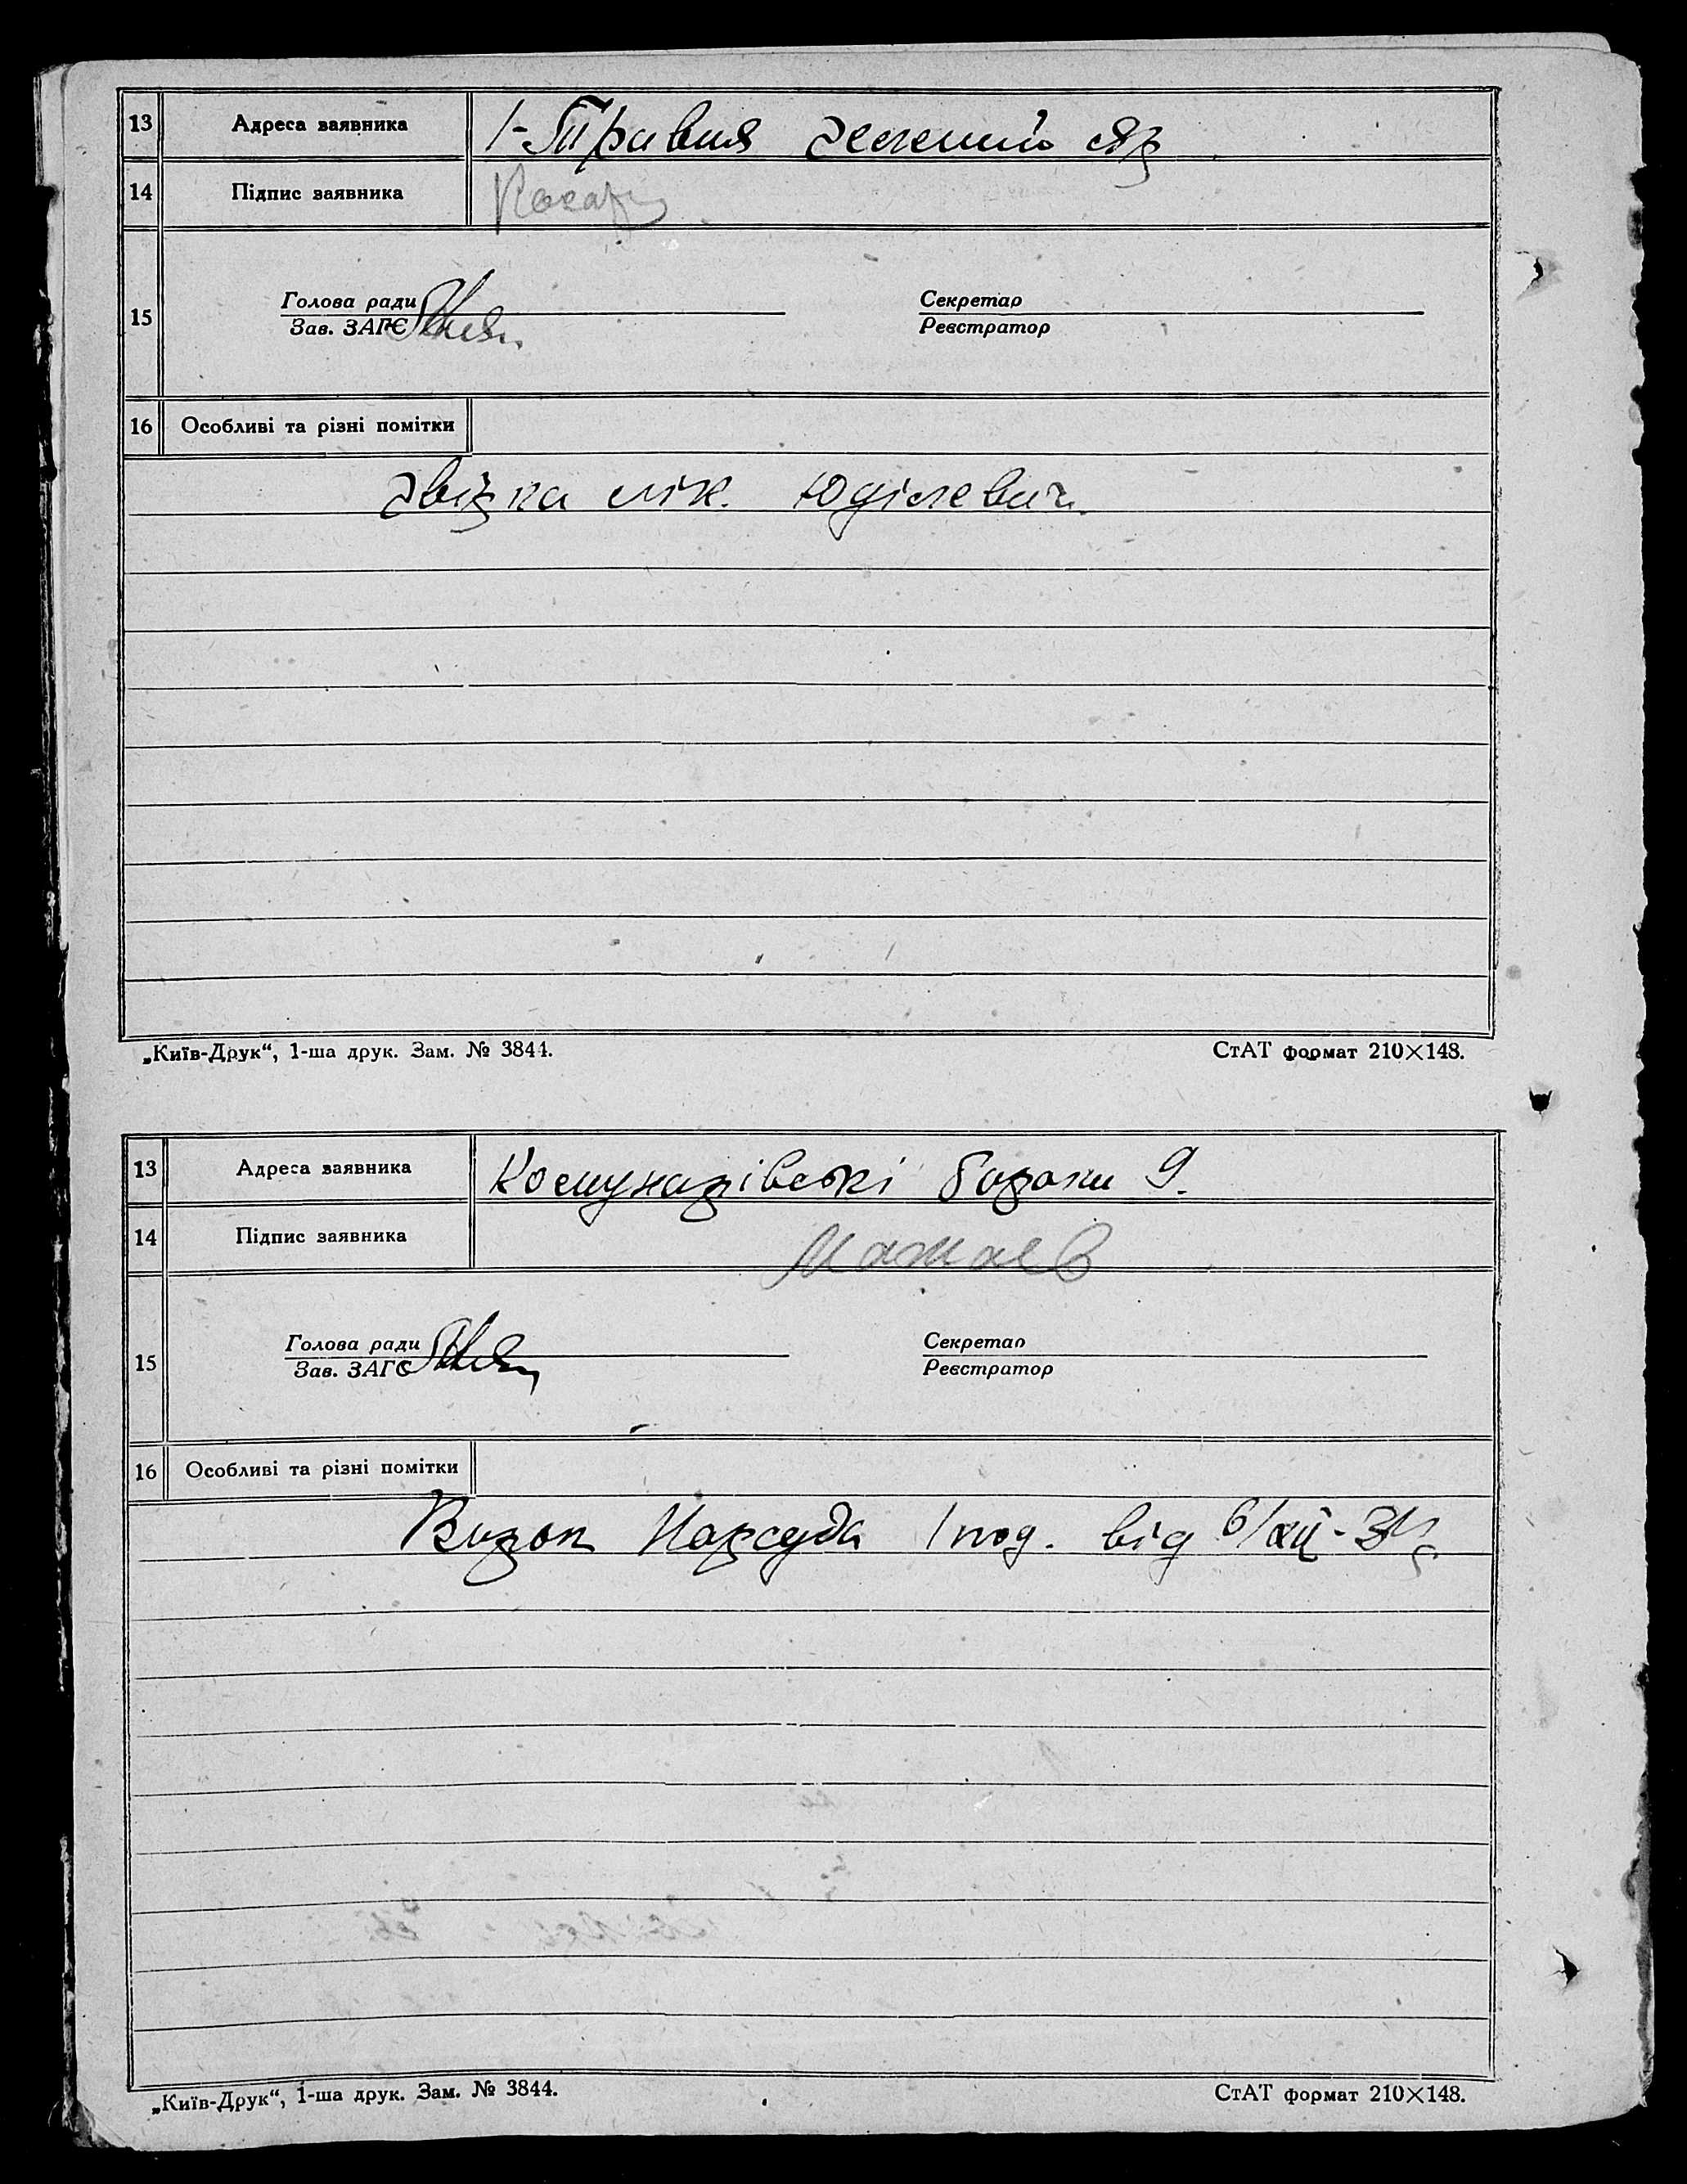 13 Адреса заявника 1-Травня зелений яр
14 Підпис заявника
Голова ради Секретар
15
Зав. ЗАГС Реєстратор
16 Особливі та різні помітки
Звізка лік. Юділевич.
„Київ-Друк“, 1-ша друк. Зам. № 3844. СтАТ формат 210×148.
13 Адреса заявника Комунарівські бараки 9.
14 Підпис заявника Мамаев
Голова ради Секретар
15
Зав. ЗАГС Реєстратор
16 Особливі та різні помітки
Вирок Нарсуда 1 под. від 6/XII-34р
„Київ-Друк“, 1-ша друк. Зам. № 3844. СтАТ формат 210×148.